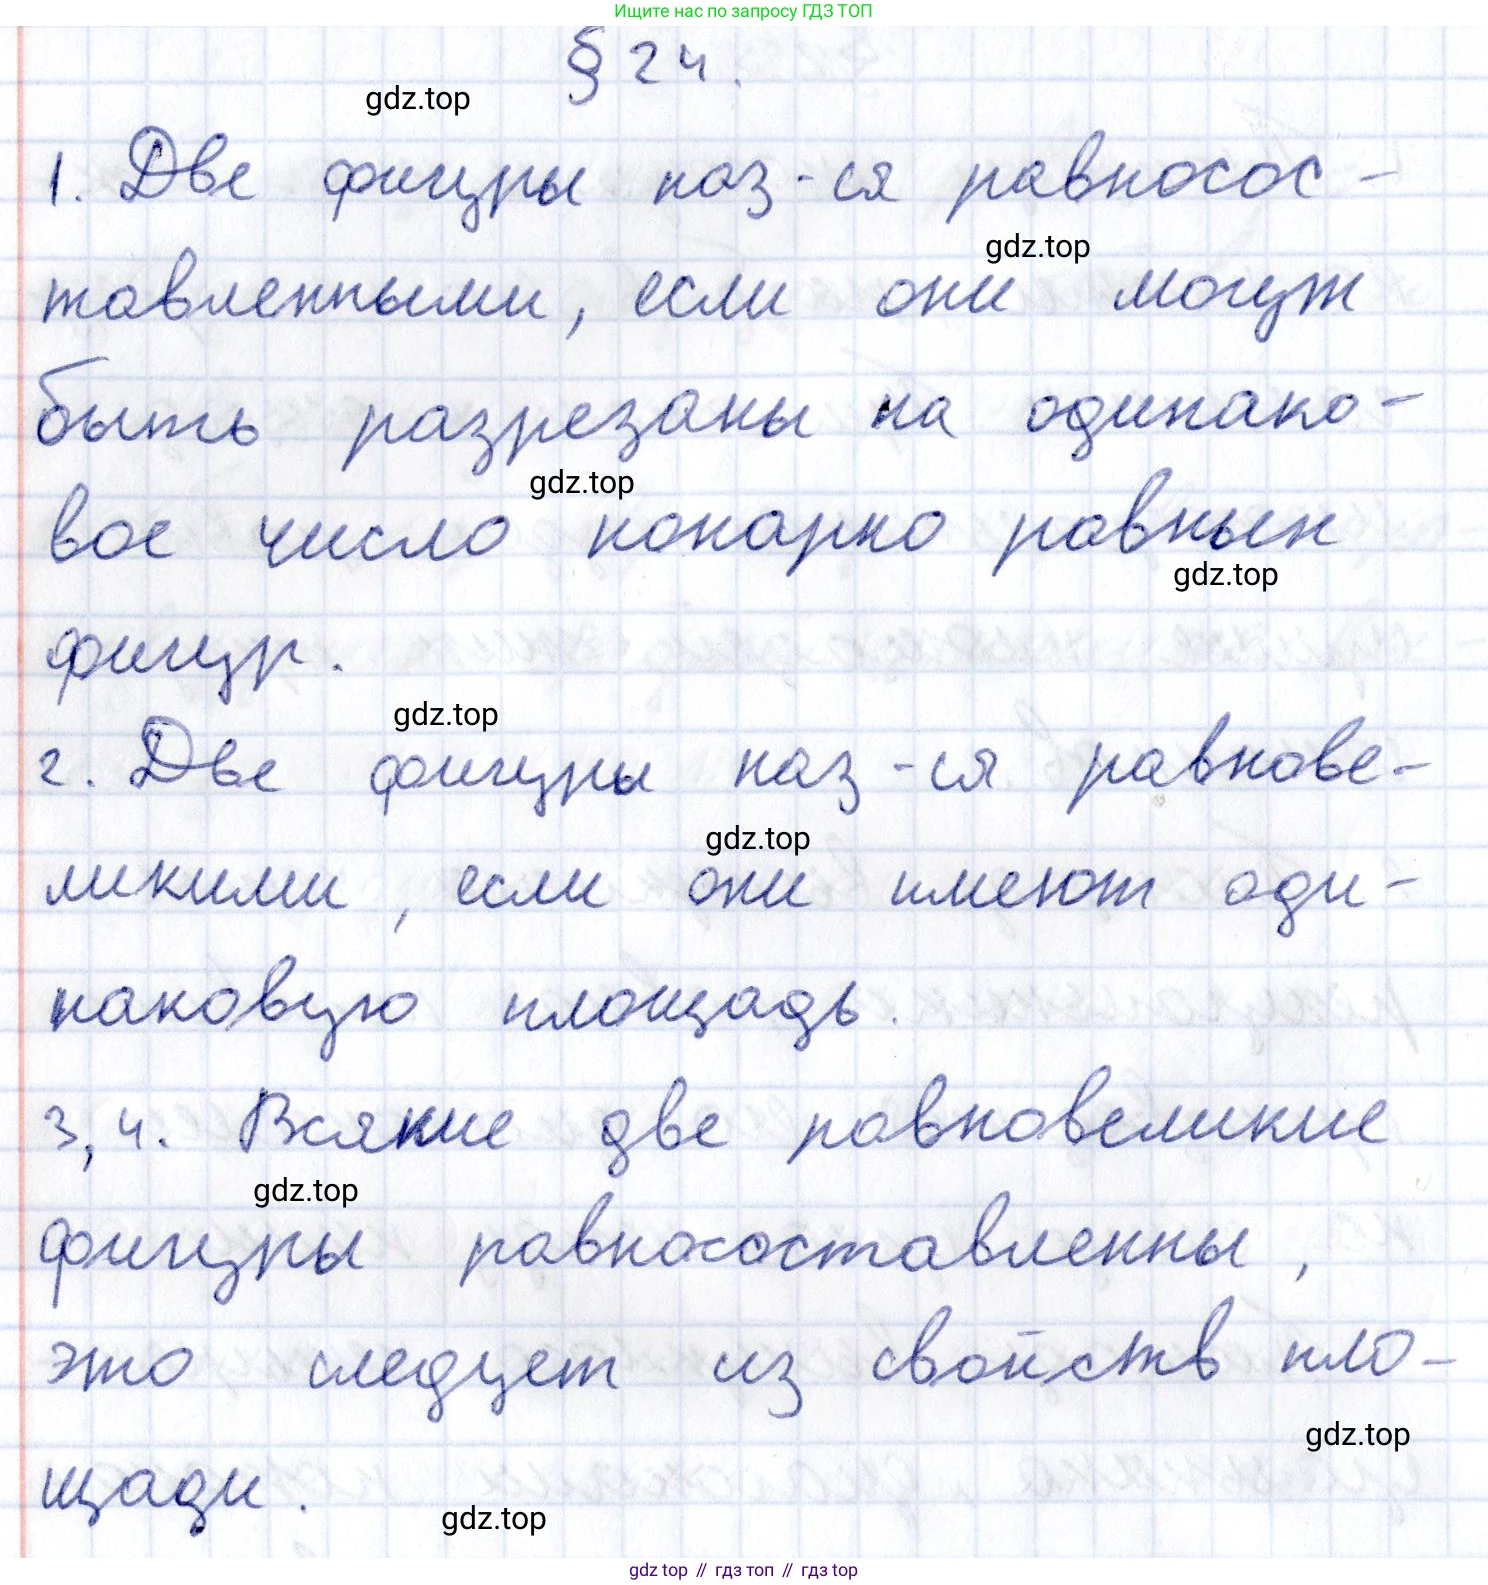 Ищите нас по запросу ГДЗ ТОП
§ 24.
gdz.top
1. Две фигуры наз-ся равносос-
gdz.top
тавленными, если они могут
быть разрезаны на одинако-
gdz.top
вое число попарно равных
gdz.top
фигур.
gdz.top
2. Две фигуры наз-ся равнове-
gdz.top
ликими, если они имеют оди-
наковую площадь.
3, 4. Всякие две равновеликие
gdz.top
фигуры равносоставленны,
это следует из свойств пло-
gdz.top
щади.
gdz.top
gdz top // гдз топ // gdz top